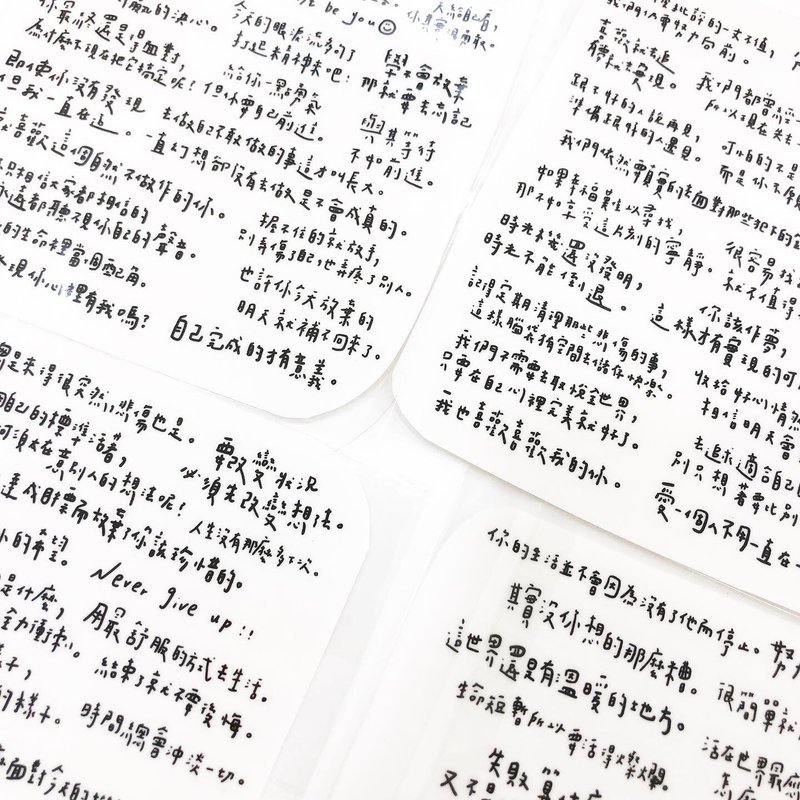 你最終還是得面對,
為什麼不現在把它搞定呢!
今天的眼淚流夠了
打起精神來吧!
be you
給你一點勇氣
但你要自己前進。
學會放棄
那就要去忘記
即使你沒有發現
但我一直在這。
去做自己不敢做的事這才叫長大。
與其等待
不如前進。
一直幻想卻沒有去做是不會成真的。
就喜歡這個自然不做作的你。
只相信大家都相信的
永遠都聽不見你自己的聲音。
握不住的就放手,
別弄傷了自己也弄疼了別人。
的生命裡當個配角。
發現你心裡有我嗎?
也許你今天放棄的
明天就補不回來了。
自己完成的才有意義。
我們都曾經
跟不好的人說再見,
準備跟好的人遇見。
可怕的不是
而是你不原
我們依然要踏實的去面對那些犯下的
如果幸福難以尋找,
那不如享受這片刻的寧靜。
很容易
就不值得
時光機還沒發明,
時光不能倒退。
你該作夢,
這樣才有實現的可
記得定期清理那些悲傷的事,
這樣腦袋有空間去儲存快樂。
我們不需要去取悅全世界,
只要在自己心裡完美就好了。
收拾好心情然
相信明天會
我也喜歡喜歡我的你。
去追求適合自己
別只想著要比別
愛一個人不用一直在一
是來得很突然,悲傷也是。
自己的標準活著,
何須太在意別人的想法呢!
要改變狀況
必須先改變想法。
達成目標而放棄了你該珍惜的。
人生沒有那麼多下次。
小的希望。
Never give up!!
是什麼,
全力衝刺。
用最舒服的方式去生活。
結束了就不要後悔。
的樣子。
時間總會沖淡一切。
面對今天的
你的生活並不會因為沒有了他而停止。
其實沒你想的那麼糟。
這世界還是有溫暖的地方。
很簡單就
生命短暫所以要活得燦爛。
活在世界最
失敗算
又不是
怎麼